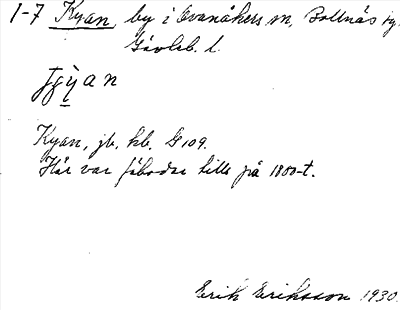 1-7 Kyan, by i Ovanåkers sn, Bollnäs tg.
Gävleb. l.
Kyan, jb. kb. G 109.
Här var fäbodar tills på 1800-t.
Erik Eriksson 1930